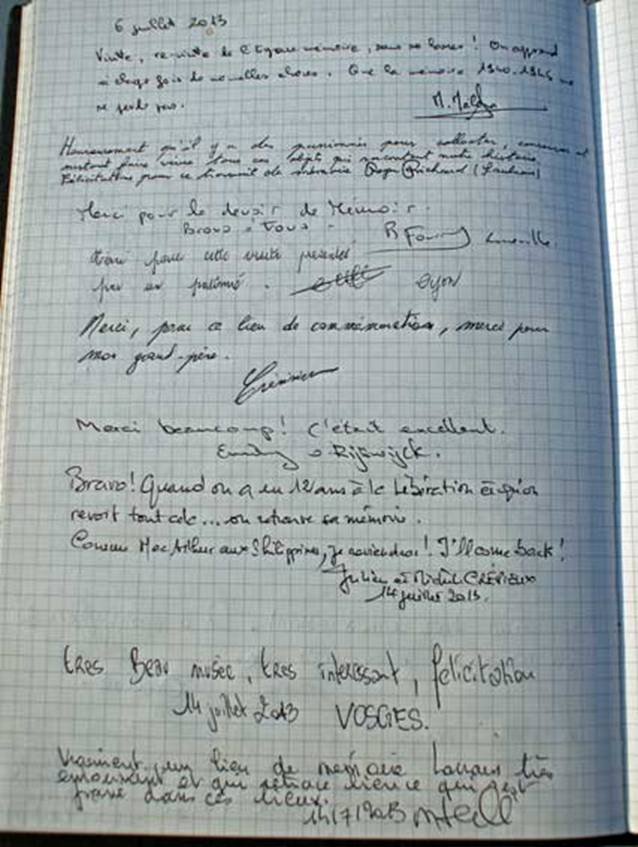 6 juillet 2013
Visite, re-visite de l'Espace mémoire, sans se lasser ! On apprend
à chaque fois de nouvelles choses. Que la mémoire 1940-1945 ne
se perde pas.
Heureusement qu'il y a des passionnés pour collecter, conserver et
surtout faire vivre tous ces objets qui racontent notre histoire.
Félicitations pour ce travail de mémoire Roger Richard
Merci pour le devoir de Mémoire.
Bravo à Tous.
pour cette visite présentée
par un passionné. Dijon
Merci, pour ce lieu de commémoration, merci pour
mon grand-père.
Merci beaucoup! C'était excellent.
Rijswijck.
Bravo! Quand on a eu 12 ans à la Libération et qu'on
revoit tout cela... on retrouve sa mémoire.
Comme Mac Arthur aux Philippines, je reviendrai! I'll come back!
Julien et Michel CRÉPIEUX
14 juillet 2013.
très Beau musée, très interessant, felicitation
14 juillet 2013 VOSGES.
Vraiment un lieu de mémoire toujours très
emouvant et qui retrace bien ce qui s'est
passé dans ces lieux.
14/7/2013